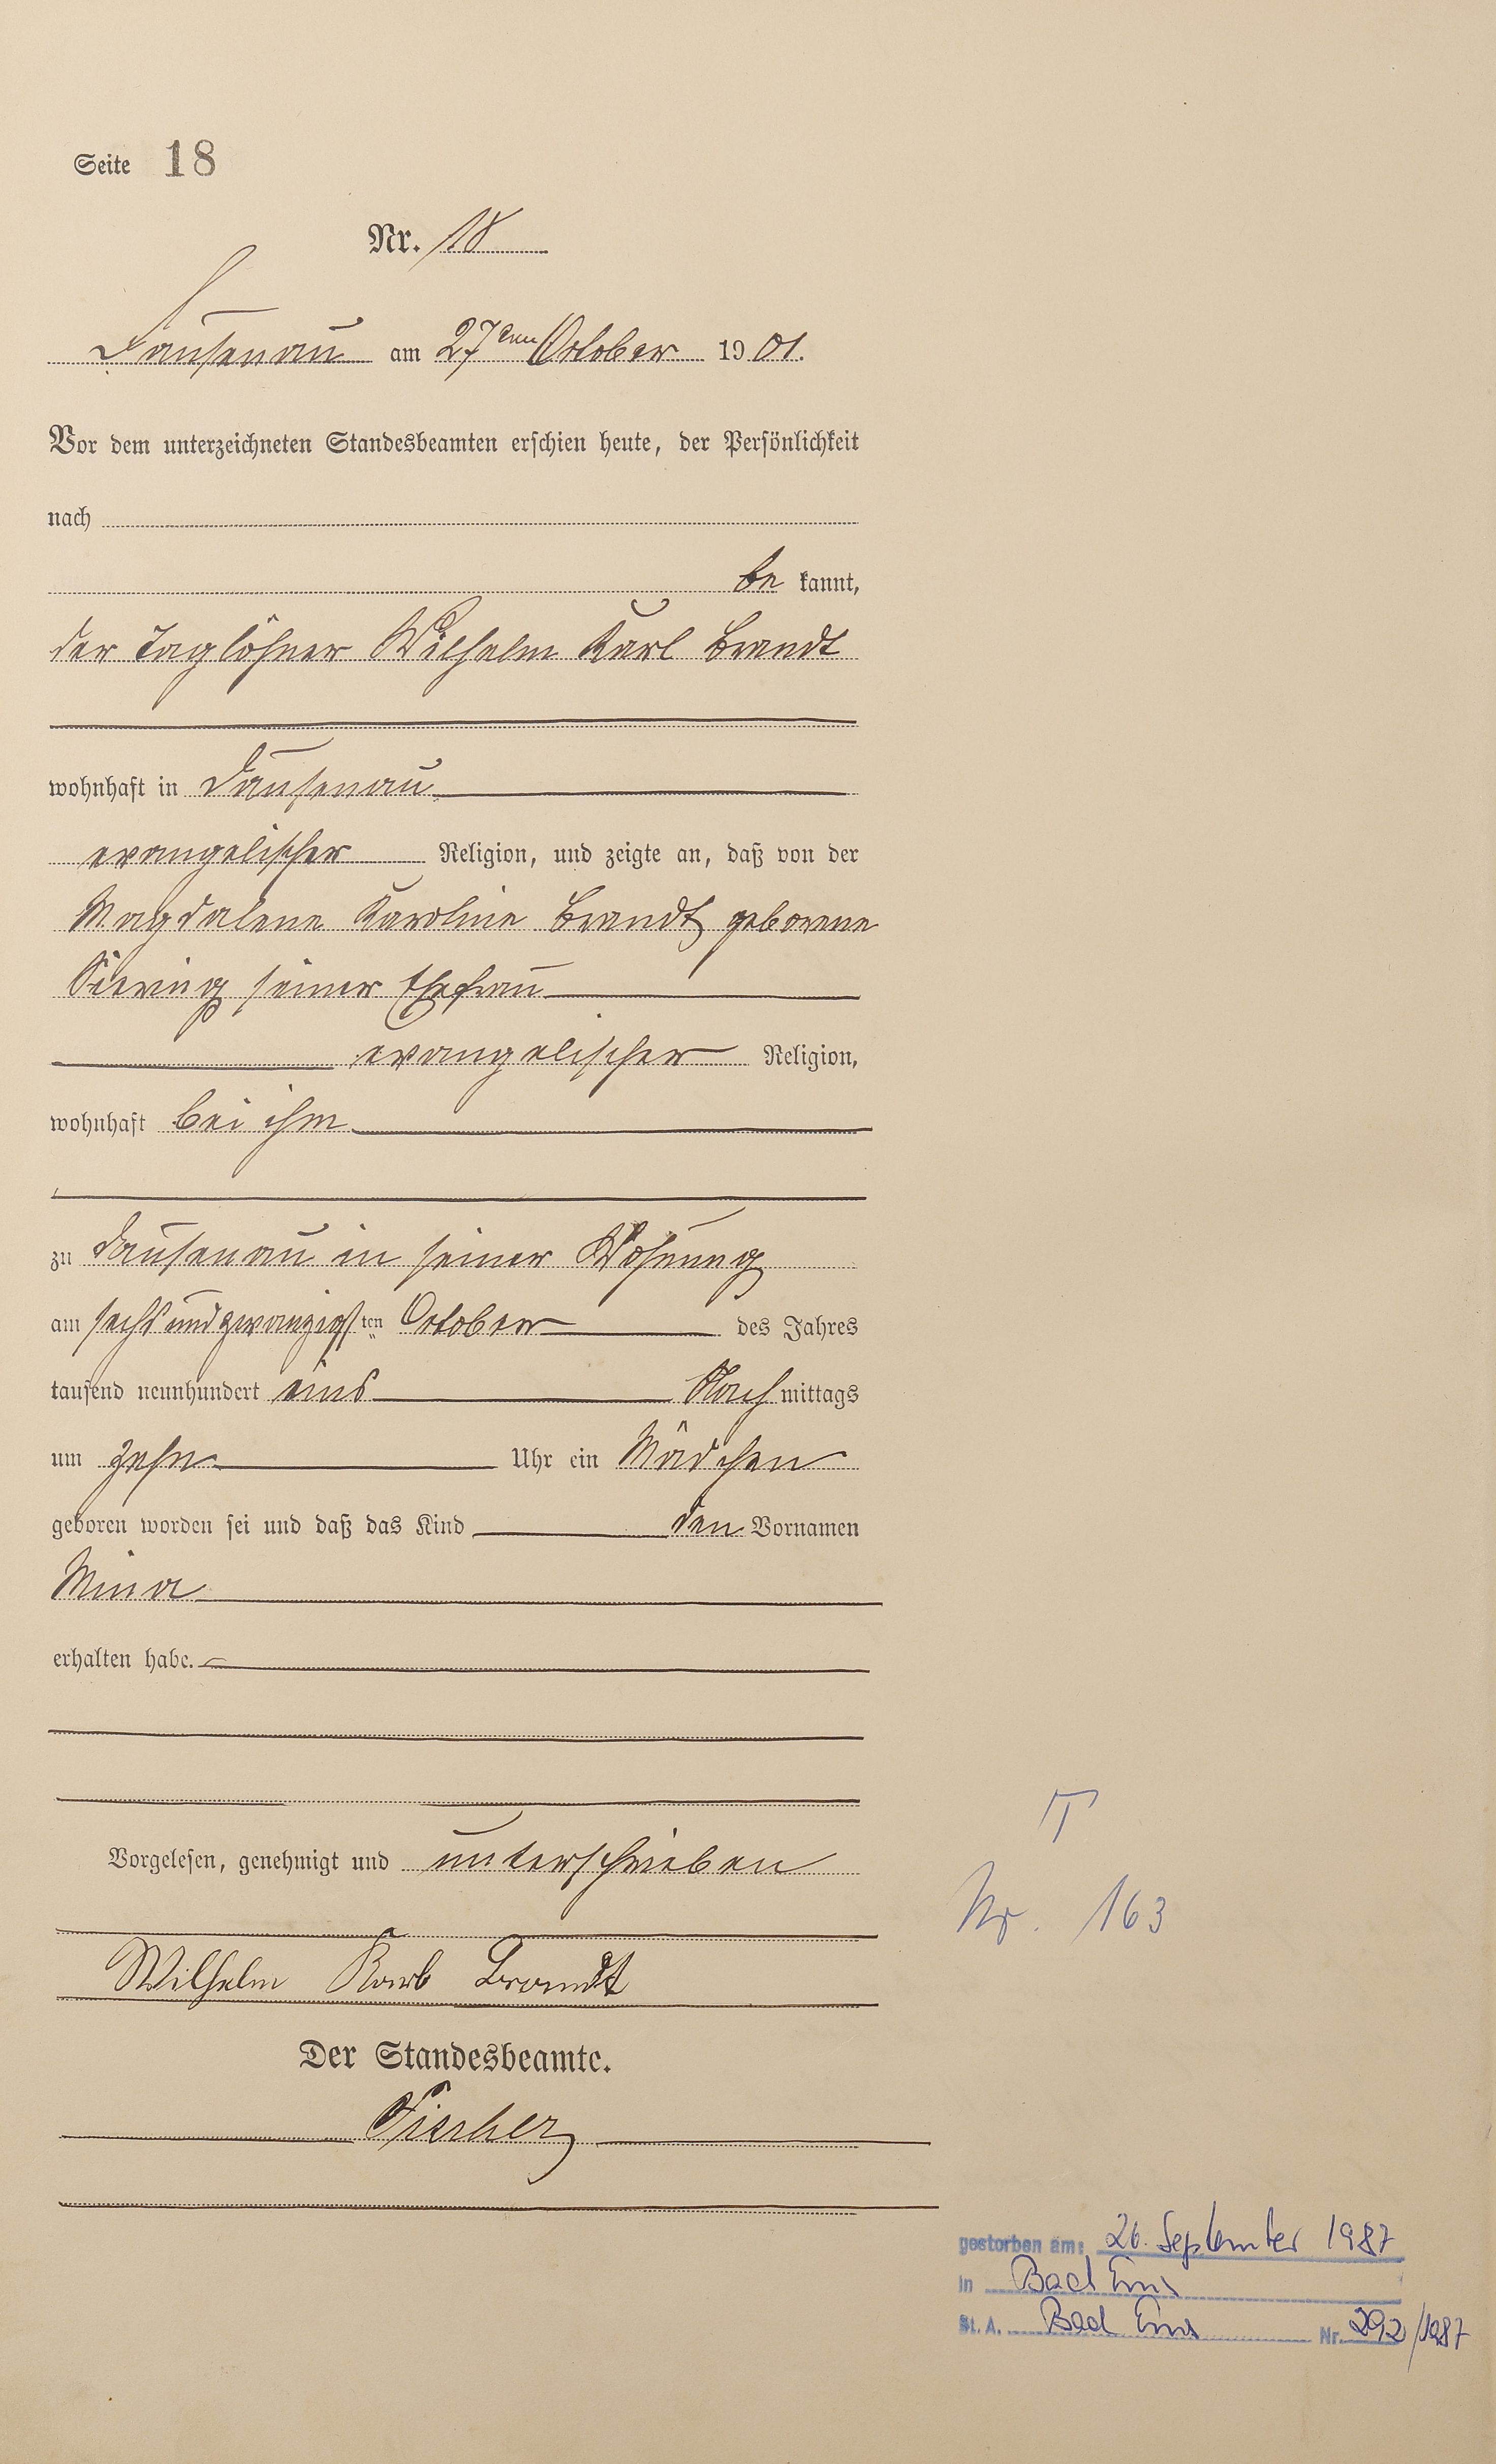 Seite 18
Nr. 18
Dausenau am 27ten October 1901.
Vor dem unterzeichneten Standesbeamten erschien heute, der Persönlichkeit
nach
be kannt,
der Taglöhner Wilhelm Karl Brandt
wohnhaft in Dausenau
evangelischer Religion, und zeigte an, daß von der
Magdalene Karoline Brandt geborene
seiner Ehefrau
evangelischer Religion,
wohnhaft bei ihm
zu Dausenau in seiner Wohnung
am sechsundzwanzigsten October des Jahres
tausend neunhundert eins Nachmittags
um zehn Uhr ein Mädchen
geboren worden sei und daß das Kind den Vornamen
Mina
erhalten habe.
Vorgelesen, genehmigt und unterschrieben
Wilhelm Karl Brandt
Der Standesbeamte.
Fischer
Nr. 163
gestorben am: 26. September 1987
in Bad Ems
St. A. Bad Ems Nr. 292/1987